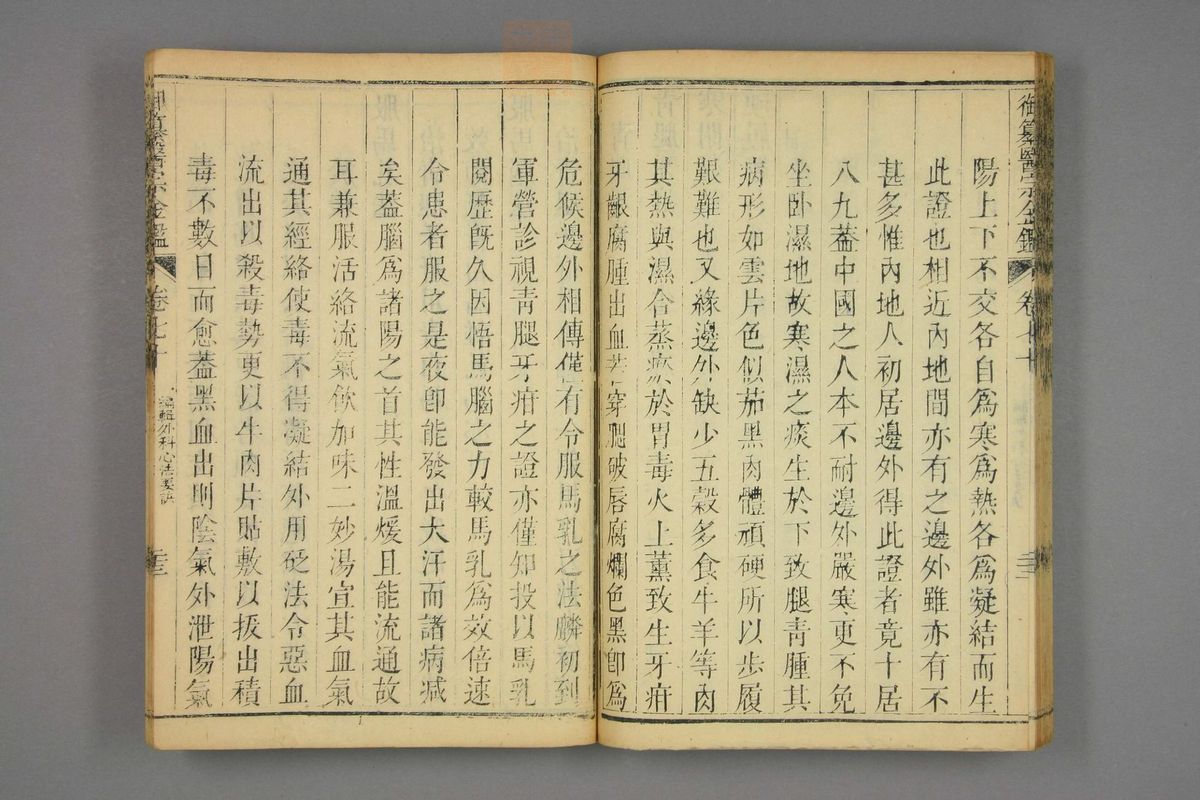 御纂醫宗金鑑 卷七十
陽上下不交各自為寒為熱各為凝結而生
此證也相近內地間亦有之邊外雖亦有不
甚多惟內地人初居邊外得此證者竟十居
八九蓋中國之人本不耐邊外嚴寒更不免
坐臥濕地故寒濕之痰生於下致腿青腫其
病形如雲片色似茄黑肉體頑硬所以步履
艱難也又緣邊外缺少五穀多食牛羊等肉
其熱與濕合蒸瘀於胃毒火上薰致生牙疳
牙齦腐腫出血若穿腮破唇腐爛色黑即為
危候邊外相傳僅有令服馬乳之法麟初到
軍營診視青腿牙疳之證亦僅知投以馬乳
閱歷既久因悟馬腦之力較馬乳為效倍速
令患者服之是夜即能發出大汗而諸病減
矣蓋腦為諸陽之首其性溫煖且能流通故
耳兼服活絡流氣飲加味二妙湯宣其血氣
通其經絡使毒不得凝結外用砭法令惡血
流出以殺毒勢更以牛肉片貼敷以拔出積
毒不數日而愈蓋黑血出則陰氣外泄陽氣
御纂醫宗金鑑 卷七十 編輯外科心法要訣